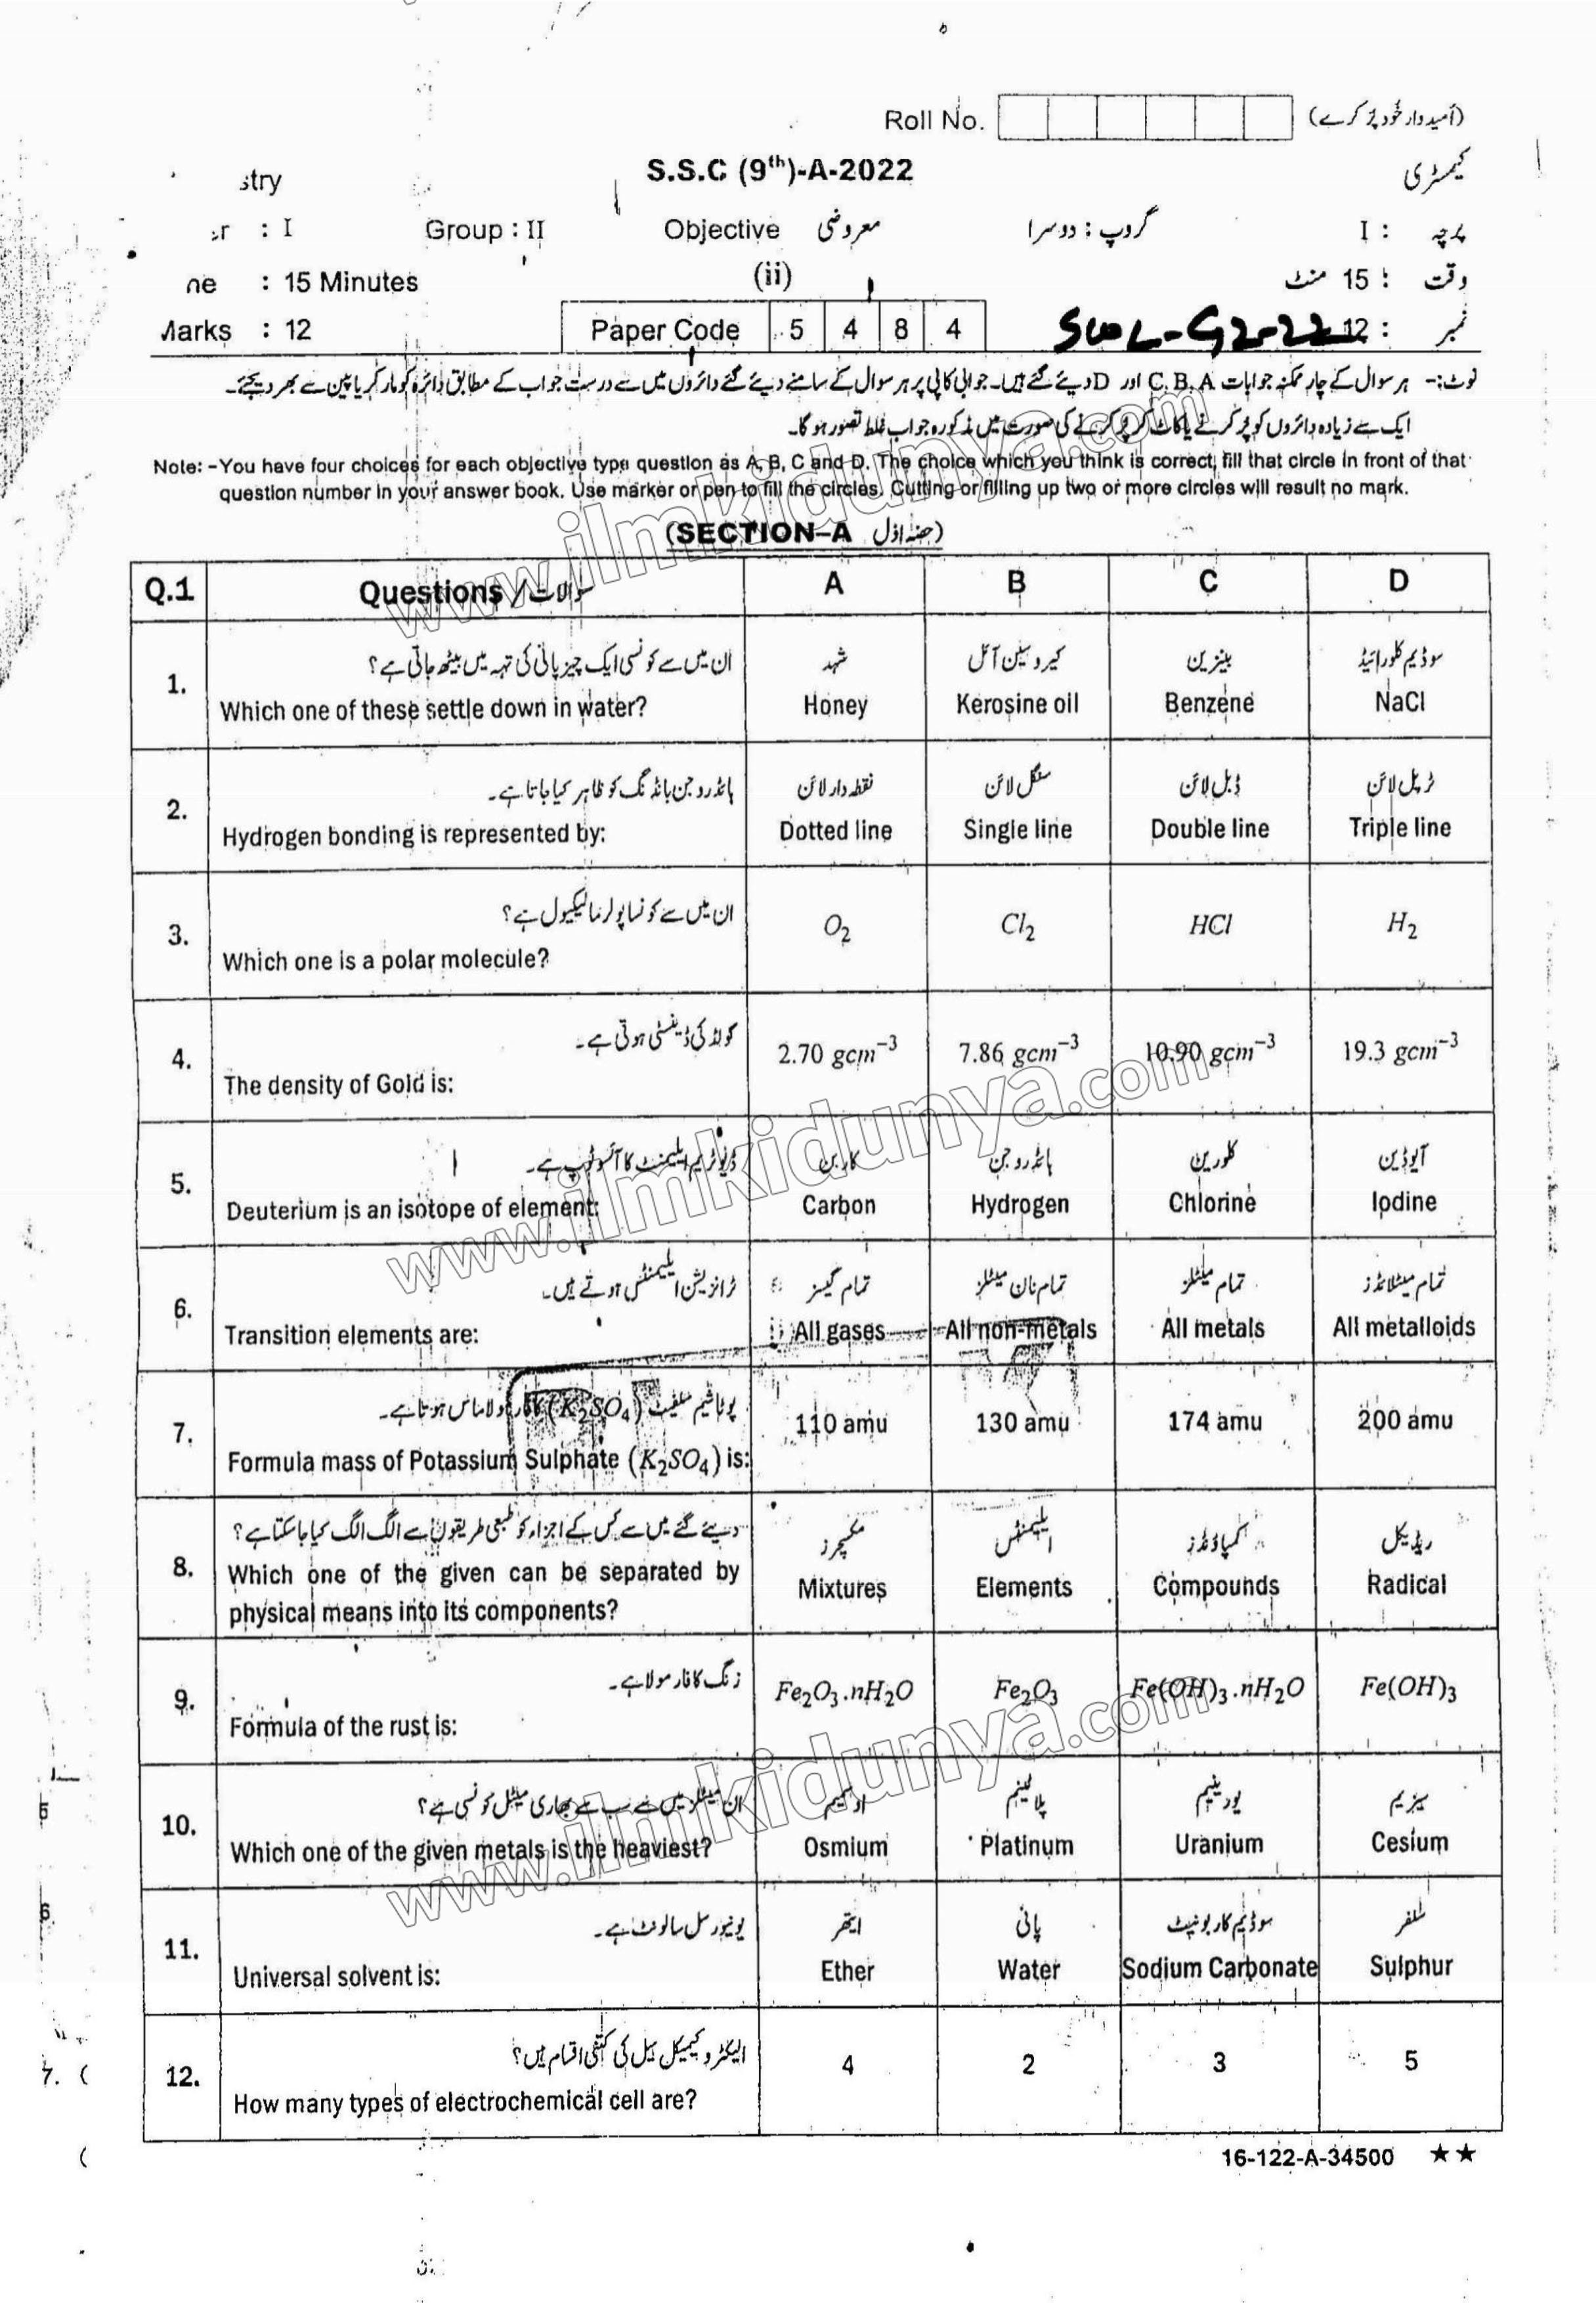 Roll No. (اُمیدوار خُود پُر کرے)
stry S.S.C (9th)-A-2022 کیمسٹری
: I Group : II Objective معروضی گروپ : دوسرا پرچہ : I
: 15 Minutes (ii) وقت : 15 منٹ
Marks : 12 Paper Code 5 4 8 4 نمبر : 12
نوٹ:- ہر سوال کے چار ممکنہ جوابات C, B, A اور D دیئے گئے ہیں۔ جوابی کاپی پر ہر سوال کے سامنے دیئے گئے دائروں میں سے درست جواب کے مطابق دائرہ کو مارکر یا پین سے بھر دیجئے۔
ایک سے زیادہ دائروں کو پُر کرنے یا کاٹ کر پُر کرنے کی صورت میں مذکورہ جواب غلط تصور ہو گا۔
Note: - You have four choices for each objective type question as A, B, C and D. The choice which you think is correct, fill that circle in front of that
question number in your answer book. Use marker or pen to fill the circles. Cutting or filling up two or more circles will result no mark.
(SECTION–A حصہ اوّل)
Q.1 Questions / سوالات A B C D
1. ان میں سے کونسی ایک چیز پانی کی تہہ میں بیٹھ جاتی ہے؟ شہد کیروسین آئل بینزین سوڈیم کلورائیڈ
Which one of these settle down in water? Honey Kerosine oil Benzene NaCl
2. ہائڈروجن بانڈنگ کو ظاہر کیا جاتا ہے۔ نقطہ دار لائن سنگل لائن ڈبل لائن ٹرپل لائن
Hydrogen bonding is represented by: Dotted line Single line Double line Triple line
3. ان میں سے کونسا پولر مالیکیول ہے؟
Which one is a polar molecule? O2 Cl2 HCl H2
4. گولڈ کی ڈینسٹی ہوتی ہے۔
The density of Gold is: 2.70 gcm⁻³ 7.86 gcm⁻³ 10.90 gcm⁻³ 19.3 gcm⁻³
5. ڈیوٹریم ایلیمنٹ کا آئسوٹوپ ہے۔ کاربن ہائڈروجن کلورین آیوڈین
Deuterium is an isotope of element: Carbon Hydrogen Chlorine Iodine
6. ٹرانزیشن ایلیمنٹس ہوتے ہیں۔ تمام گیسز تمام نان میٹلز تمام میٹلز تمام میٹلائڈز
Transition elements are: All gases All non-metals All metals All metalloids
7. پوٹاشیم سلفیٹ (K2SO4) کا فارمولا ماس ہوتا ہے۔
Formula mass of Potassium Sulphate (K2SO4) is: 110 amu 130 amu 174 amu 200 amu
8. دیئے گئے میں سے کس کے اجزاء کو طبعی طریقوں سے الگ الگ کیا جا سکتا ہے؟ مکسچرز ایلیمنٹس کمپاؤنڈز ریڈیکل
Which one of the given can be separated by
physical means into its components? Mixtures Elements Compounds Radical
9. زنگ کا فارمولا ہے۔
Formula of the rust is: Fe2O3.nH2O Fe2O3 Fe(OH)3.nH2O Fe(OH)3
10. ان میٹلز میں سے سب سے بھاری میٹل کونسی ہے؟ اوسمیم پلاٹینم یورینیم سیزیم
Which one of the given metals is the heaviest? Osmium Platinum Uranium Cesium
11. یونیورسل سالونٹ ہے۔ ایتھر پانی سوڈیم کاربونیٹ سلفر
Universal solvent is: Ether Water Sodium Carbonate Sulphur
12. الیکٹروکیمیکل سیل کی کتنی اقسام ہیں؟
How many types of electrochemical cell are? 4 2 3 5
16-122-A-34500 ★★
www.ilmkidunya.com
www.ilmkidunya.com
www.ilmkidunya.com